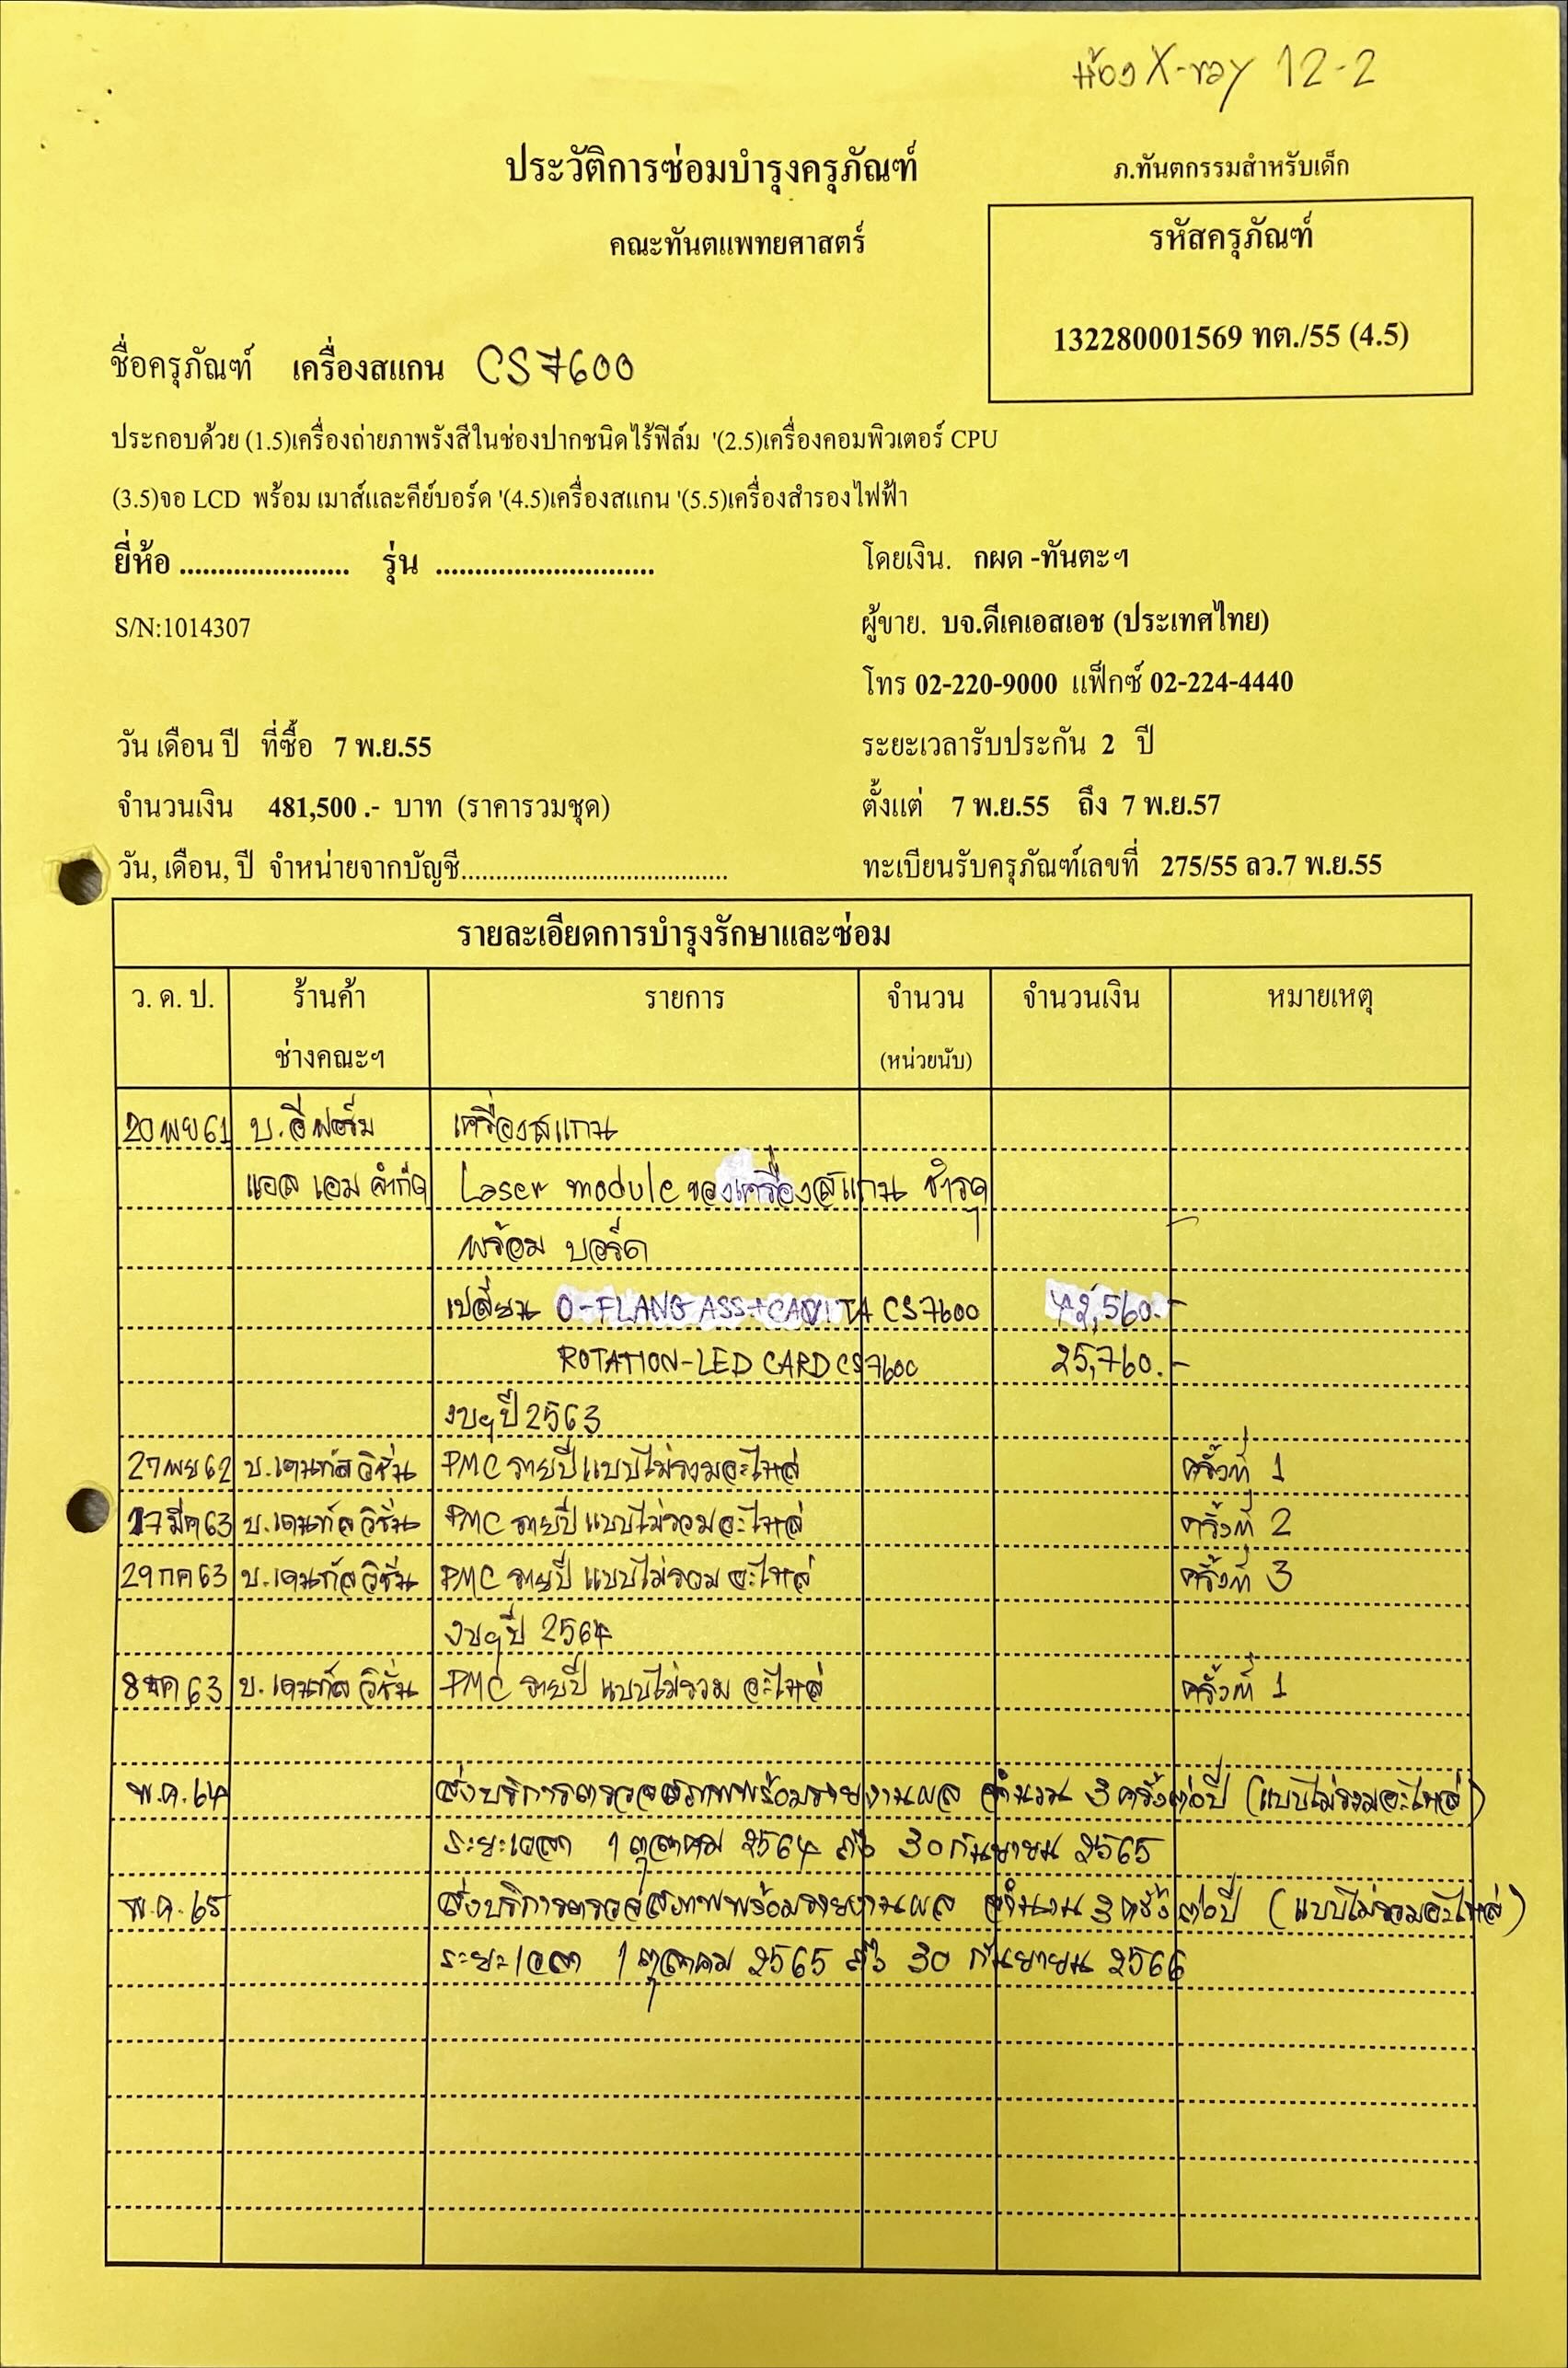 ห้อง X-ray 12-2
ประวัติการซ่อมบำรุงครุภัณฑ์
ภ.ทันตกรรมสำหรับเด็ก
คณะทันตแพทยศาสตร์
รหัสครุภัณฑ์
132280001569 ทต./55 (4.5)
ชื่อครุภัณฑ์ เครื่องสแกน CS7600
ประกอบด้วย (1.5)เครื่องถ่ายภาพรังสีในช่องปากชนิดไร้ฟิล์ม '(2.5)เครื่องคอมพิวเตอร์ CPU
(3.5)จอ LCD พร้อม เมาส์และคีย์บอร์ด '(4.5)เครื่องสแกน '(5.5)เครื่องสำรองไฟฟ้า
ยี่ห้อ ...................... รุ่น ............................ โดยเงิน. กผด -ทันตะฯ
S/N:1014307 ผู้ขาย. บจ.ดีเคเอสเอช (ประเทศไทย)
โทร 02-220-9000 แฟ็กซ์ 02-224-4440
วัน เดือน ปี ที่ซื้อ 7 พ.ย.55 ระยะเวลารับประกัน 2 ปี
จำนวนเงิน 481,500 .- บาท (ราคารวมชุด) ตั้งแต่ 7 พ.ย.55 ถึง 7 พ.ย.57
วัน, เดือน, ปี จำหน่ายจากบัญชี...................................... ทะเบียนรับครุภัณฑ์เลขที่ 275/55 ลว.7 พ.ย.55
รายละเอียดการบำรุงรักษาและซ่อม
ว. ด. ป. ร้านค้า รายการ จำนวน จำนวนเงิน หมายเหตุ
ช่างคณะฯ (หน่วยนับ)
20 พย 61 บ.อีฟอร์ม เครื่องสแกน
แอล เอม จำกัด Laser module ของเครื่องสแกน ชำรุด
พร้อม บอร์ด
เปลี่ยน O-FLANG ASS+ CS7600 42,560.-
ROTATION-LED CARD CS7600 25,760.-
งบฯปี 2563
27 พย 62 บ.เดนทัล วิชั่น PMC รายปี แบบไม่รวมอะไหล่ ครั้งที่ 1
17 มีค 63 บ.เดนทัล วิชั่น PMC รายปี แบบไม่รวมอะไหล่ ครั้งที่ 2
29 กค 63 บ.เดนทัล วิชั่น PMC รายปี แบบไม่รวม อะไหล่ ครั้งที่ 3
งบฯปี 2564
8 ธค 63 บ.เดนทัล วิชั่น PMC รายปี แบบไม่รวม อะไหล่ ครั้งที่ 1
พ.ค. 64 จ้างบริการตรวจสภาพพร้อมรายงานผล จำนวน 3 ครั้งต่อปี (แบบไม่รวมอะไหล่)
ระยะเวลา 1 ตุลาคม 2564 ถึง 30 กันยายน 2565
พ.ค. 65 จ้างบริการตรวจสภาพพร้อมรายงานผล จำนวน 3 ครั้งต่อปี (แบบไม่รวมอะไหล่)
ระยะเวลา 1 ตุลาคม 2565 ถึง 30 กันยายน 2566